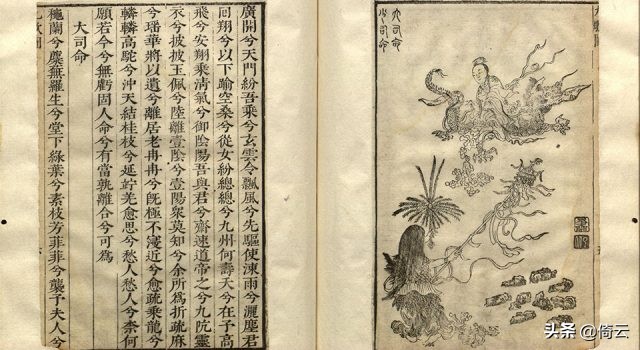 大司命
少司命
廣開兮天門紛吾乘兮玄雲令飄風兮先驅使涷雨兮灑塵君
迴翔兮以下踰空桑兮從女紛總總兮九州何壽夭兮在予高
飛兮安翔乘清氣兮御陰陽吾與君兮齋速道帝之兮九阬靈
衣兮披披玉佩兮陸離壹陰兮壹陽衆莫知兮余所爲折疏麻
兮瑤華將以遺兮離居老冉冉兮旣極不寖近兮愈疏乘龍兮
轔轔高駝兮沖天結桂枝兮延竚羌愈思兮愁人愁人兮奈何
願若今兮無虧固人命兮有當孰離合兮可爲
大司命
穐蘭兮麋蕪羅生兮堂下綠葉兮素枝芳菲菲兮襲予夫人兮
头条 @倚云